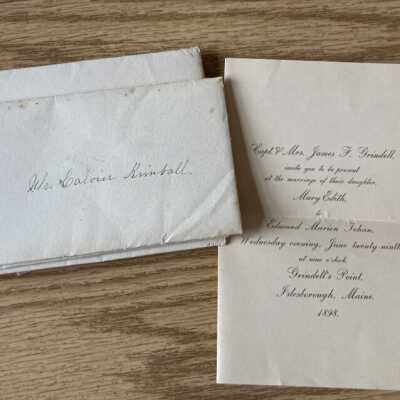 Calvin Kimball.
Capt. & Mrs. James F. Grindell,
invite you to be present
at the marriage of their daughter,
Mary Edith,
to
Edward Marion
Wednesday evening, June twenty-ninth
at nine o'clock,
Grindell's Point,
Islesborough, Maine.
1898.